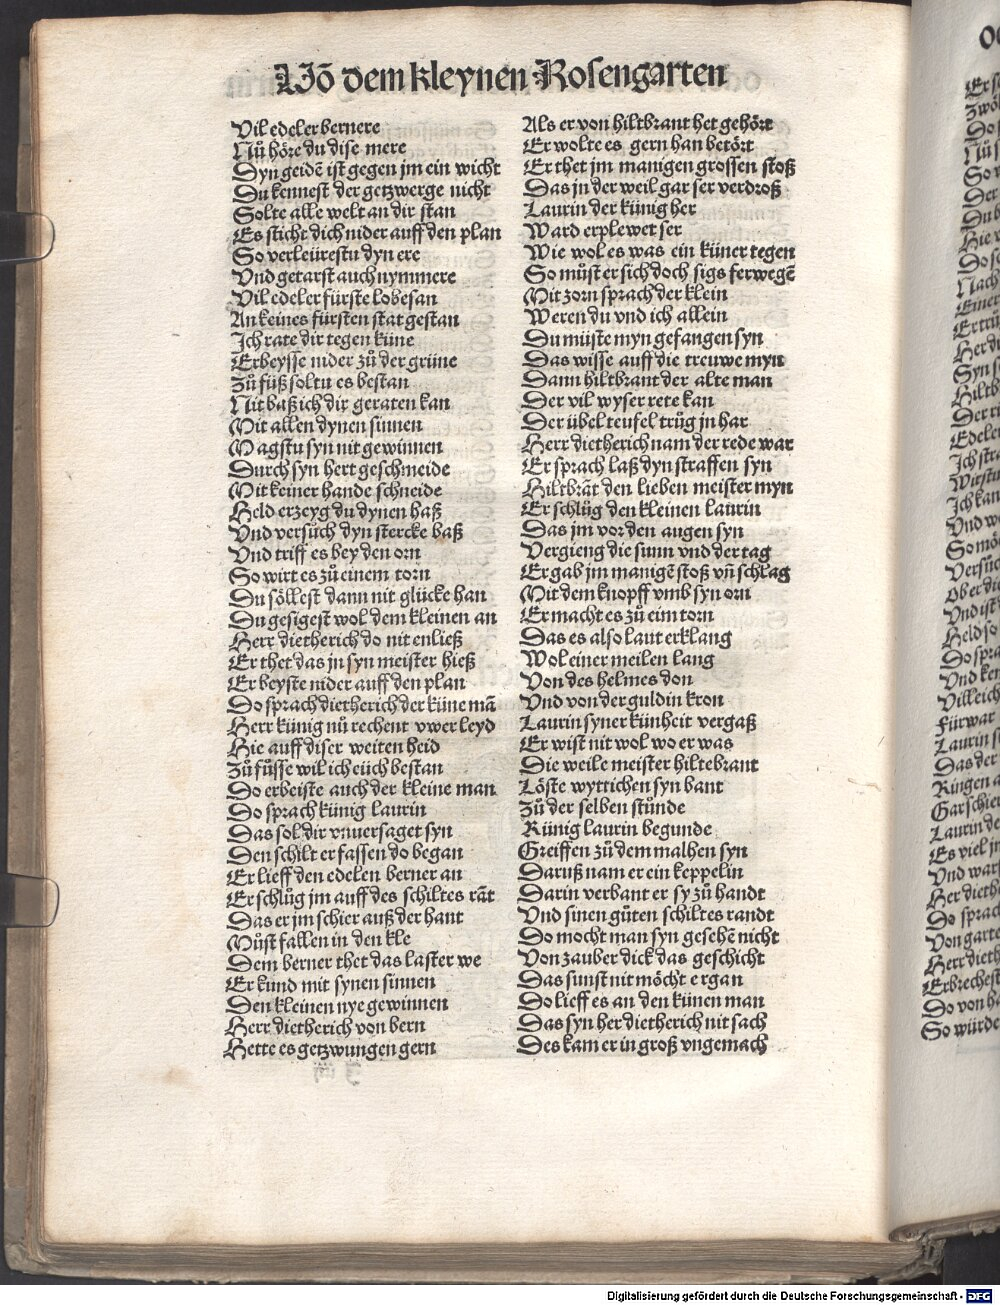 Võ dem kleynen Rosengarten
Vil edeler bernere
Nů höre du dise mere
Dyn geidē ist gegen jm ein wicht
Du kennest der getzwerge nicht
Solte alle welt an dir stan
Es sticht dich nider auff den plan
So verleürestu dyn ere
Vnd getarst auch nymmere
Vil edeler fürste lobesan
An keines fürsten stat gestan
Jch rate dir tegen küne
Erbeysse nider zů der grüne
Zů fůß soltu es bestan
Nit baß ich dir geraten kan
Mit allen dynen sinnen
Magstu syn nit gewinnen
Durch syn hert geschmeide
Mit keiner hande schneide
Held erzeyg du dynen haß
Vnd versůch dyn stercke baß
Vnd triff es bey den orn
So wirt es zů einem torn
Du söllest dann nit glücke han
Du gesigest wol dem kleinen an
Herr dietherich do nit enließ
Er thet das jn syn meister hieß
Er beyste nider auff den plan
Do sprach dietherich der küne mā
Herr künig nů rechent vwer leyd
Hie auff diser weiten heid
Zů fůsse wil ich eüch bestan
Do erbeiste auch der kleine man
Do sprach künig laurin
Das sol dir vnuersaget syn
Den schilt er fassen do began
Er lieff den edelen berner an
Er schlůg jm auff des schiltes rāt
Das er jm schier auß der hant
Můst fallen in den kle
Dem berner thet das laster we
Er kund mit synen sinnen
Den kleinen nye gewinnen
Herr dietherich von bern
Hette es getzwungen gern
Als er von hiltbrant het gehört
Er wolte es gern han betört
Er thet jm manigen grossen stoß
Das jn der weil gar ser verdroß
Laurin der künig her
Ward erplewet ser
Wie wol es was ein küner tegen
So můst er sich doch sigs ferwegē
Mit zorn sprach der klein
Weren du vnd ich allein
Du müste myn gefangen syn
Das wisse auff die treuwe myn
Dann hiltbrant der alte man
Der vil wyser rete kan
Der übel teufel trůg jn har
Herr dietherich nam der rede war
Er sprach laß dyn straffen syn
Hiltbrāt den lieben meister myn
Er schlůg den kleinen laurin
Das jm vor den augen syn
Vergieng die sunn vnd der tag
Er gab jm manigē stoß vñ schlag
Mit dem knopff vmb syn orn
Er macht es zů eim torn
Das es also laut erklang
Wol einer meilen lang
Von des helmes don
Vnd von der guldin kron
Laurin syner künheit vergaß
Er wist nit wol wo er was
Die weile meister hiltebrant
Löste wyttichen syn bant
Zů der selben stůnde
Künig laurin begunde
Greiffen zů dem malhen syn
Daruß nam er ein keppelin
Darin verbant er sy zů handt
Vnd sinen gůten schiltes randt
Do mocht man syn gesehē nicht
Von zauber dick das geschicht
Das sunst nit möcht ergan
Do lieff es an den künen man
Das syn her dietherich nit sach
Des kam er in groß vngemach
Digitalisierung gefördert durch die Deutsche Forschungsgemeinschaft - DFG